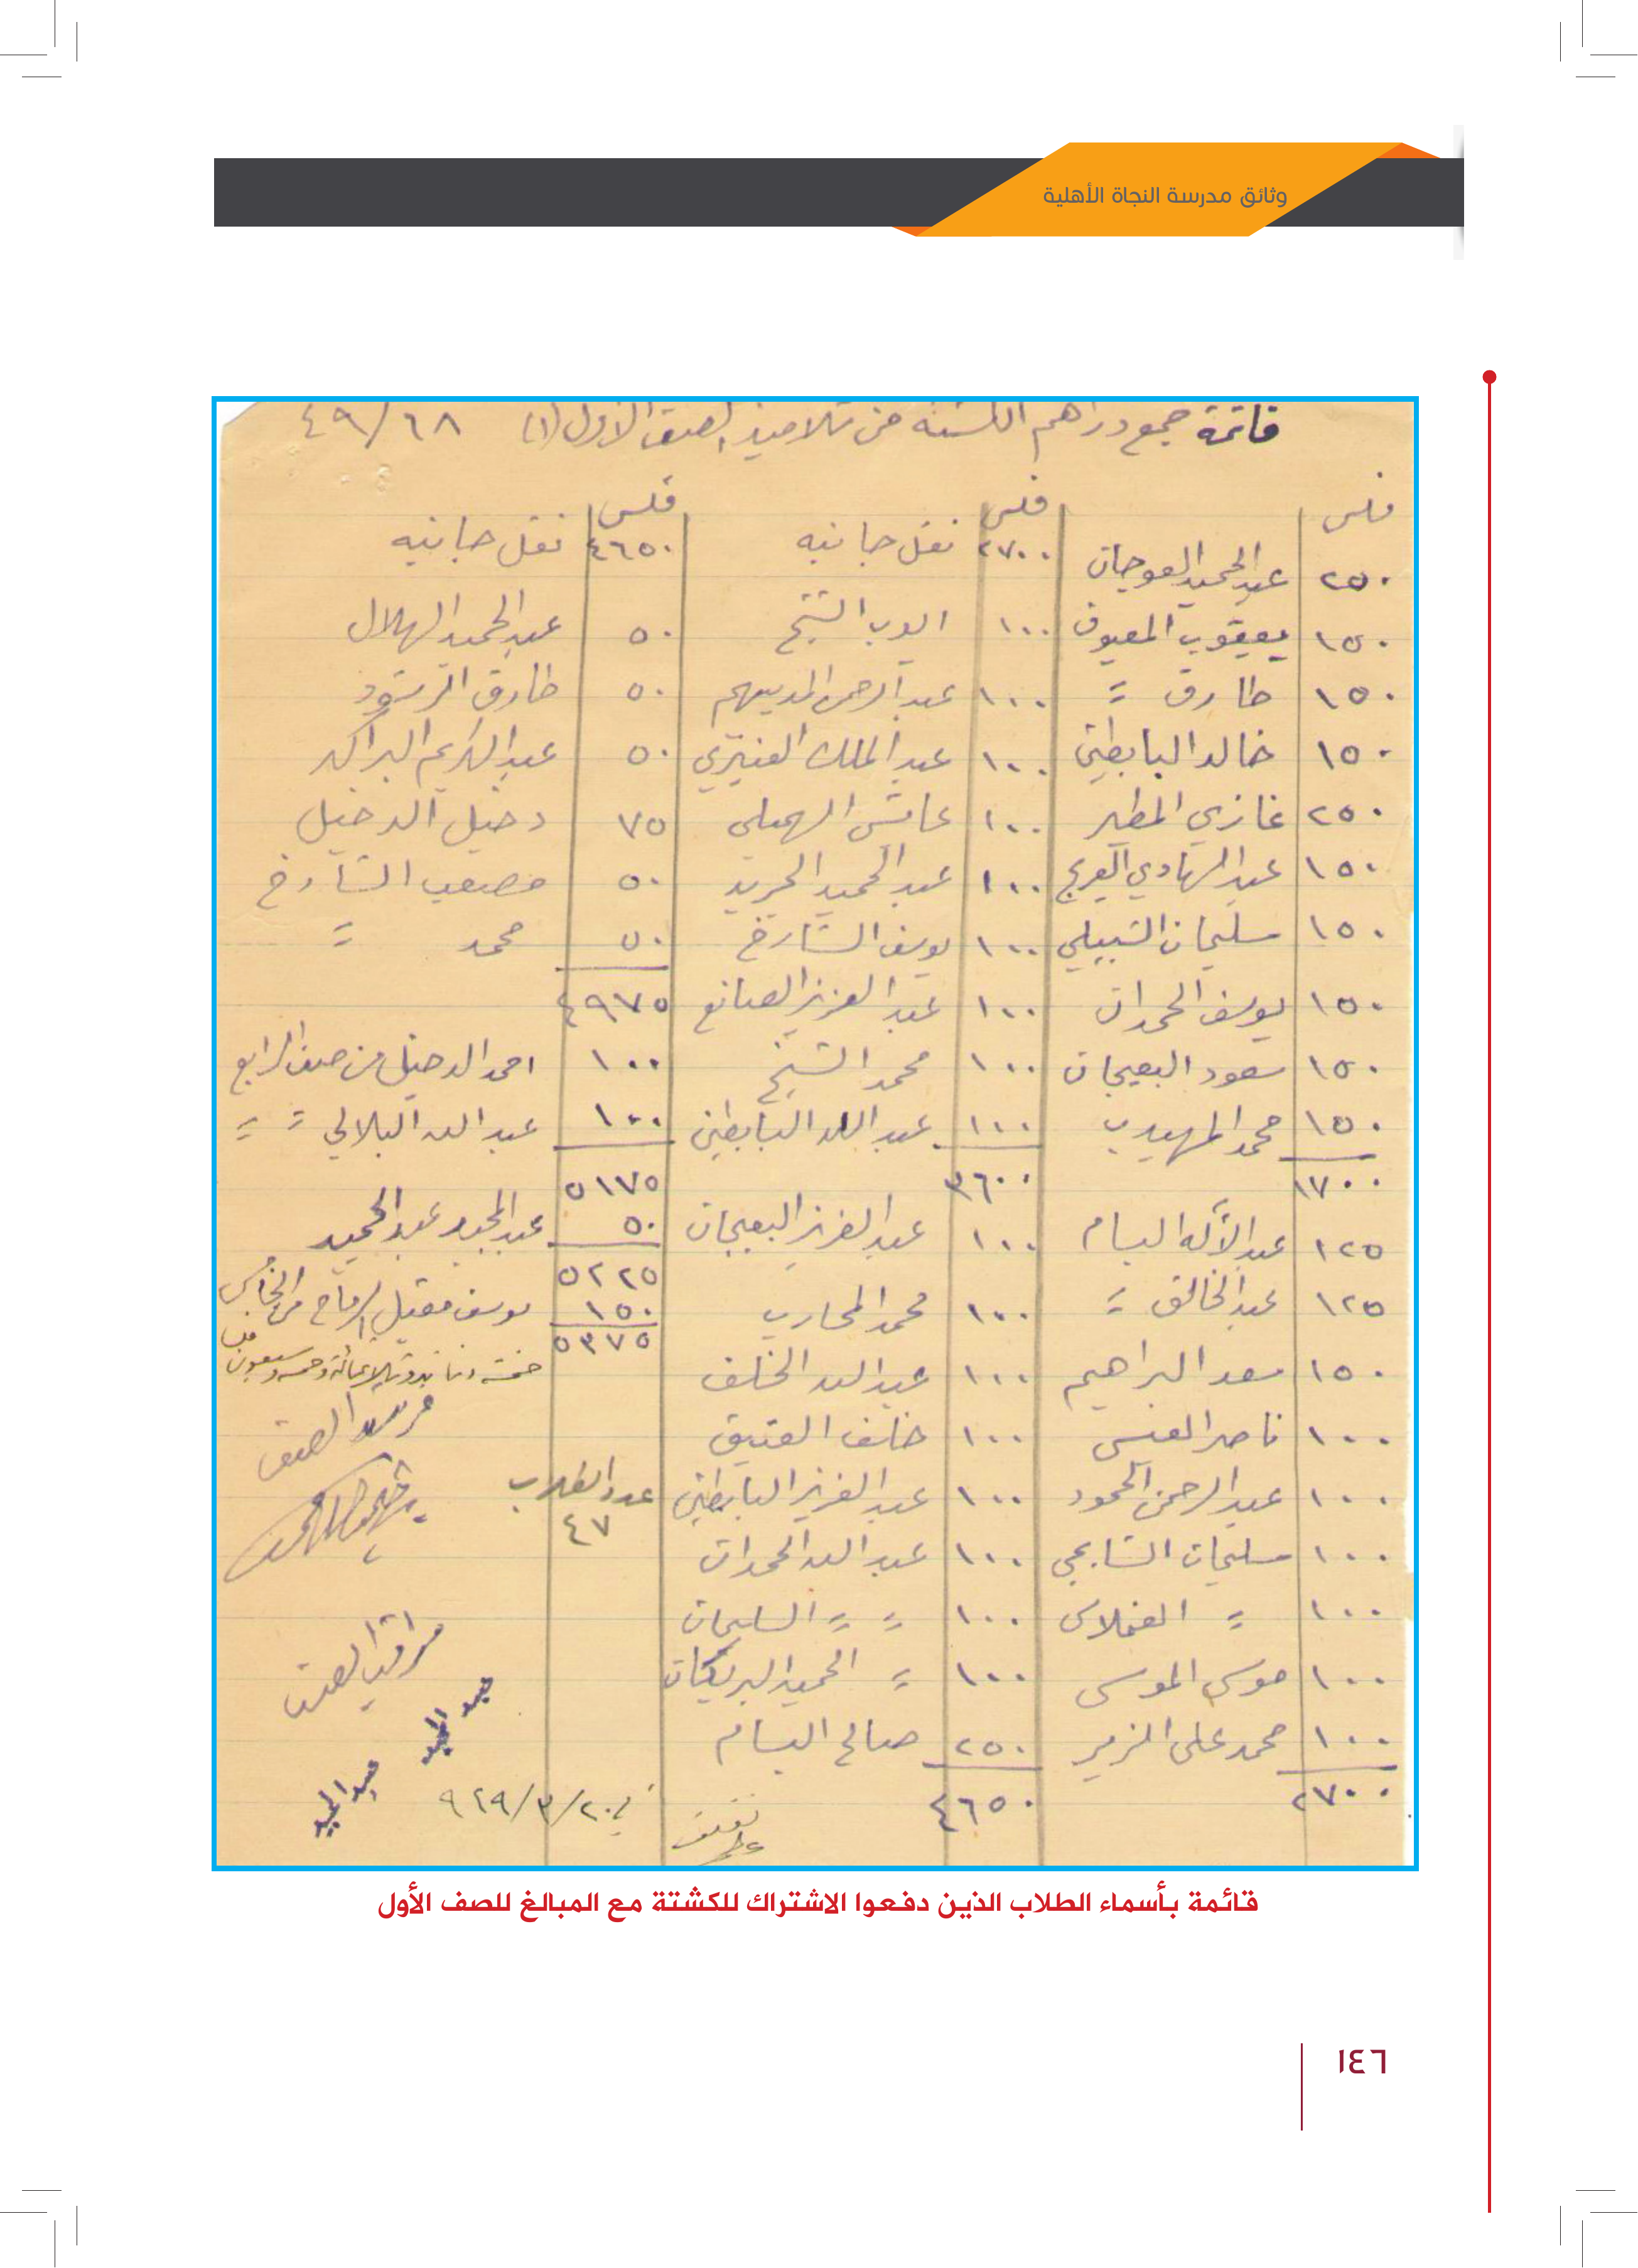 وثائق مدرسة النجاة الأهلية
قائمة جمع دراهم الكشتة من تلاميذ الصف الأول (١) ٤٩/٦٨
فلس
٢٥٠ عبد الحميد العوجان
١٥٠ يعقوب المعيوف
١٥٠ طارق =
١٥٠ خالد البابطين
٢٥٠ غازي المطير
١٥٠ عبد الهادي الفريج
١٥٠ سليمان الشبيلي
١٥٠ يوسف الحمدان
١٥٠ سعود البعيجان
١٥٠ محمد المهيدب
١٧٠٠
١٢٥ عبد الأله البسام
١٢٥ عبد الخالق =
١٥٠ سعد البراهيم
١٠٠ ناصر العيسى
١٠٠ عبد الرحمن المحمود
١٠٠ سليمان الشايجي
١٠٠ =
١٠٠ موسى الموسى
١٠٠ محمد علي المزيد
٢٧٠٠
فلس
٢٧٠٠ نقل جانبه
١٠٠ ايوب الشيخ
١٠٠ عبد الرحمن المديهيم
١٠٠ عبد الملك العنيزي
١٠٠ عايش
١٠٠ عبد الحميد
١٠٠ يوسف الشارخ
١٠٠ عبد العزيز الصانع
١٠٠ محمد الشيخ
١٠٠ عبد الله البابطين
٣٦٠٠
١٠٠ عبد العزيز البعيجان
١٠٠ محمد المحارب
١٠٠ عبد الله الخلف
١٠٠ خلف العتيق
١٠٠ عبد العزيز البابطين
١٠٠ عبد الله الحمدان
١٠٠ = = السليمان
١٠٠ = الحميد البريكان
٢٥٠ صالح البسام
٤٦٥٠
فلس
٤٦٥٠ نقل جانبه
٥٠ عبد الحميد الهلال
٥٠ طارق الرشود
٥٠ عبد الكريم البراك
٧٥ دخيل الدخيل
٥٠ مصعب الشارخ
٥٠ محمد =
٤٩٧٥
١٠٠ احمد الدخيل من صف الرابع
١٠٠ عبد الله البلالي = =
٥١٧٥
٥٠ عبد المجيد عبد الحميد
٥٢٢٥
١٥٠ يوسف مقبل الرماح من الخامس
٥٣٧٥
خمسة دنانير وثلاثمائة وخمسة وسبعون فلس
مرشد الصف
عدد الطلاب
٤٧
مراقب الصف
عبد المجيد
عبد المجيد
في ٢٠/٣/٩٦٩
قائمة بأسماء الطلاب الذين دفعوا الاشتراك للكشتة مع المبالغ للصف الأول
١٤٦